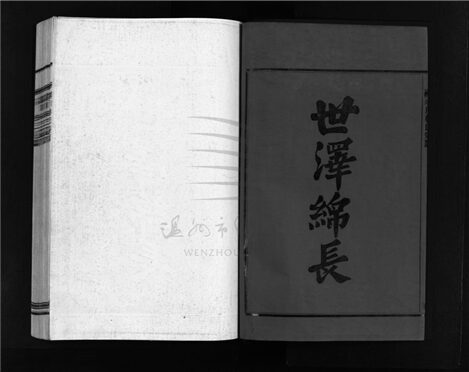 世澤綿長
温州市
WENZHOU